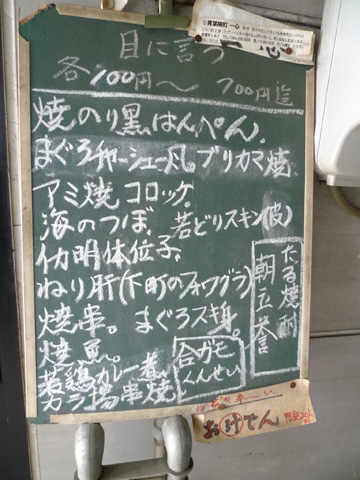 青葉横町 一心
目に言う
各100円〜 700円迄
焼のり黒はんぺん.
まぐろチャーシュー风.ブリカマ焼.
アミ焼 コロッケ.
海のつぼ. 若どりスキン(皮)
イカ明体位子.
ねり肝(下町のフォワグラ)
焼串。まぐろスキ身。
焼魚。
若鶏カレー煮.
カラ揚串焼.
合ガモ
くんせい
たる焼酎
朝立誉
お汁でん